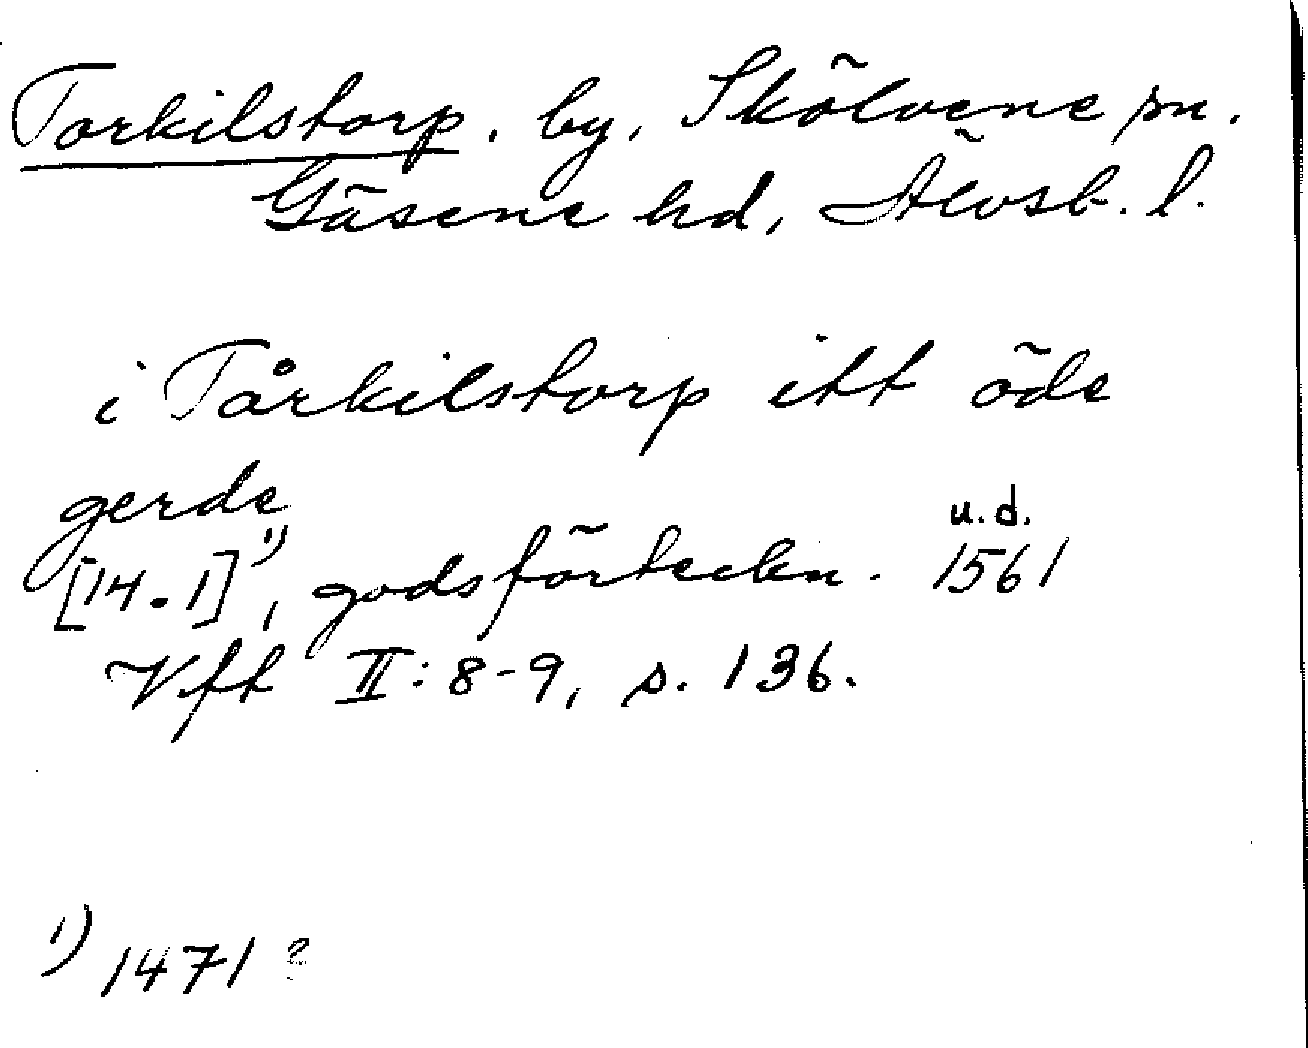 Torkilstorp. by, Skölvene sn.
Gäsene hd, Älvsb. l.
i Tårkilstorp itt öde
gerde
u.d.
[14.1]¹⁾, godsförteckn. 1561
Vft II: 8-9, s. 136.
¹⁾ 1471?